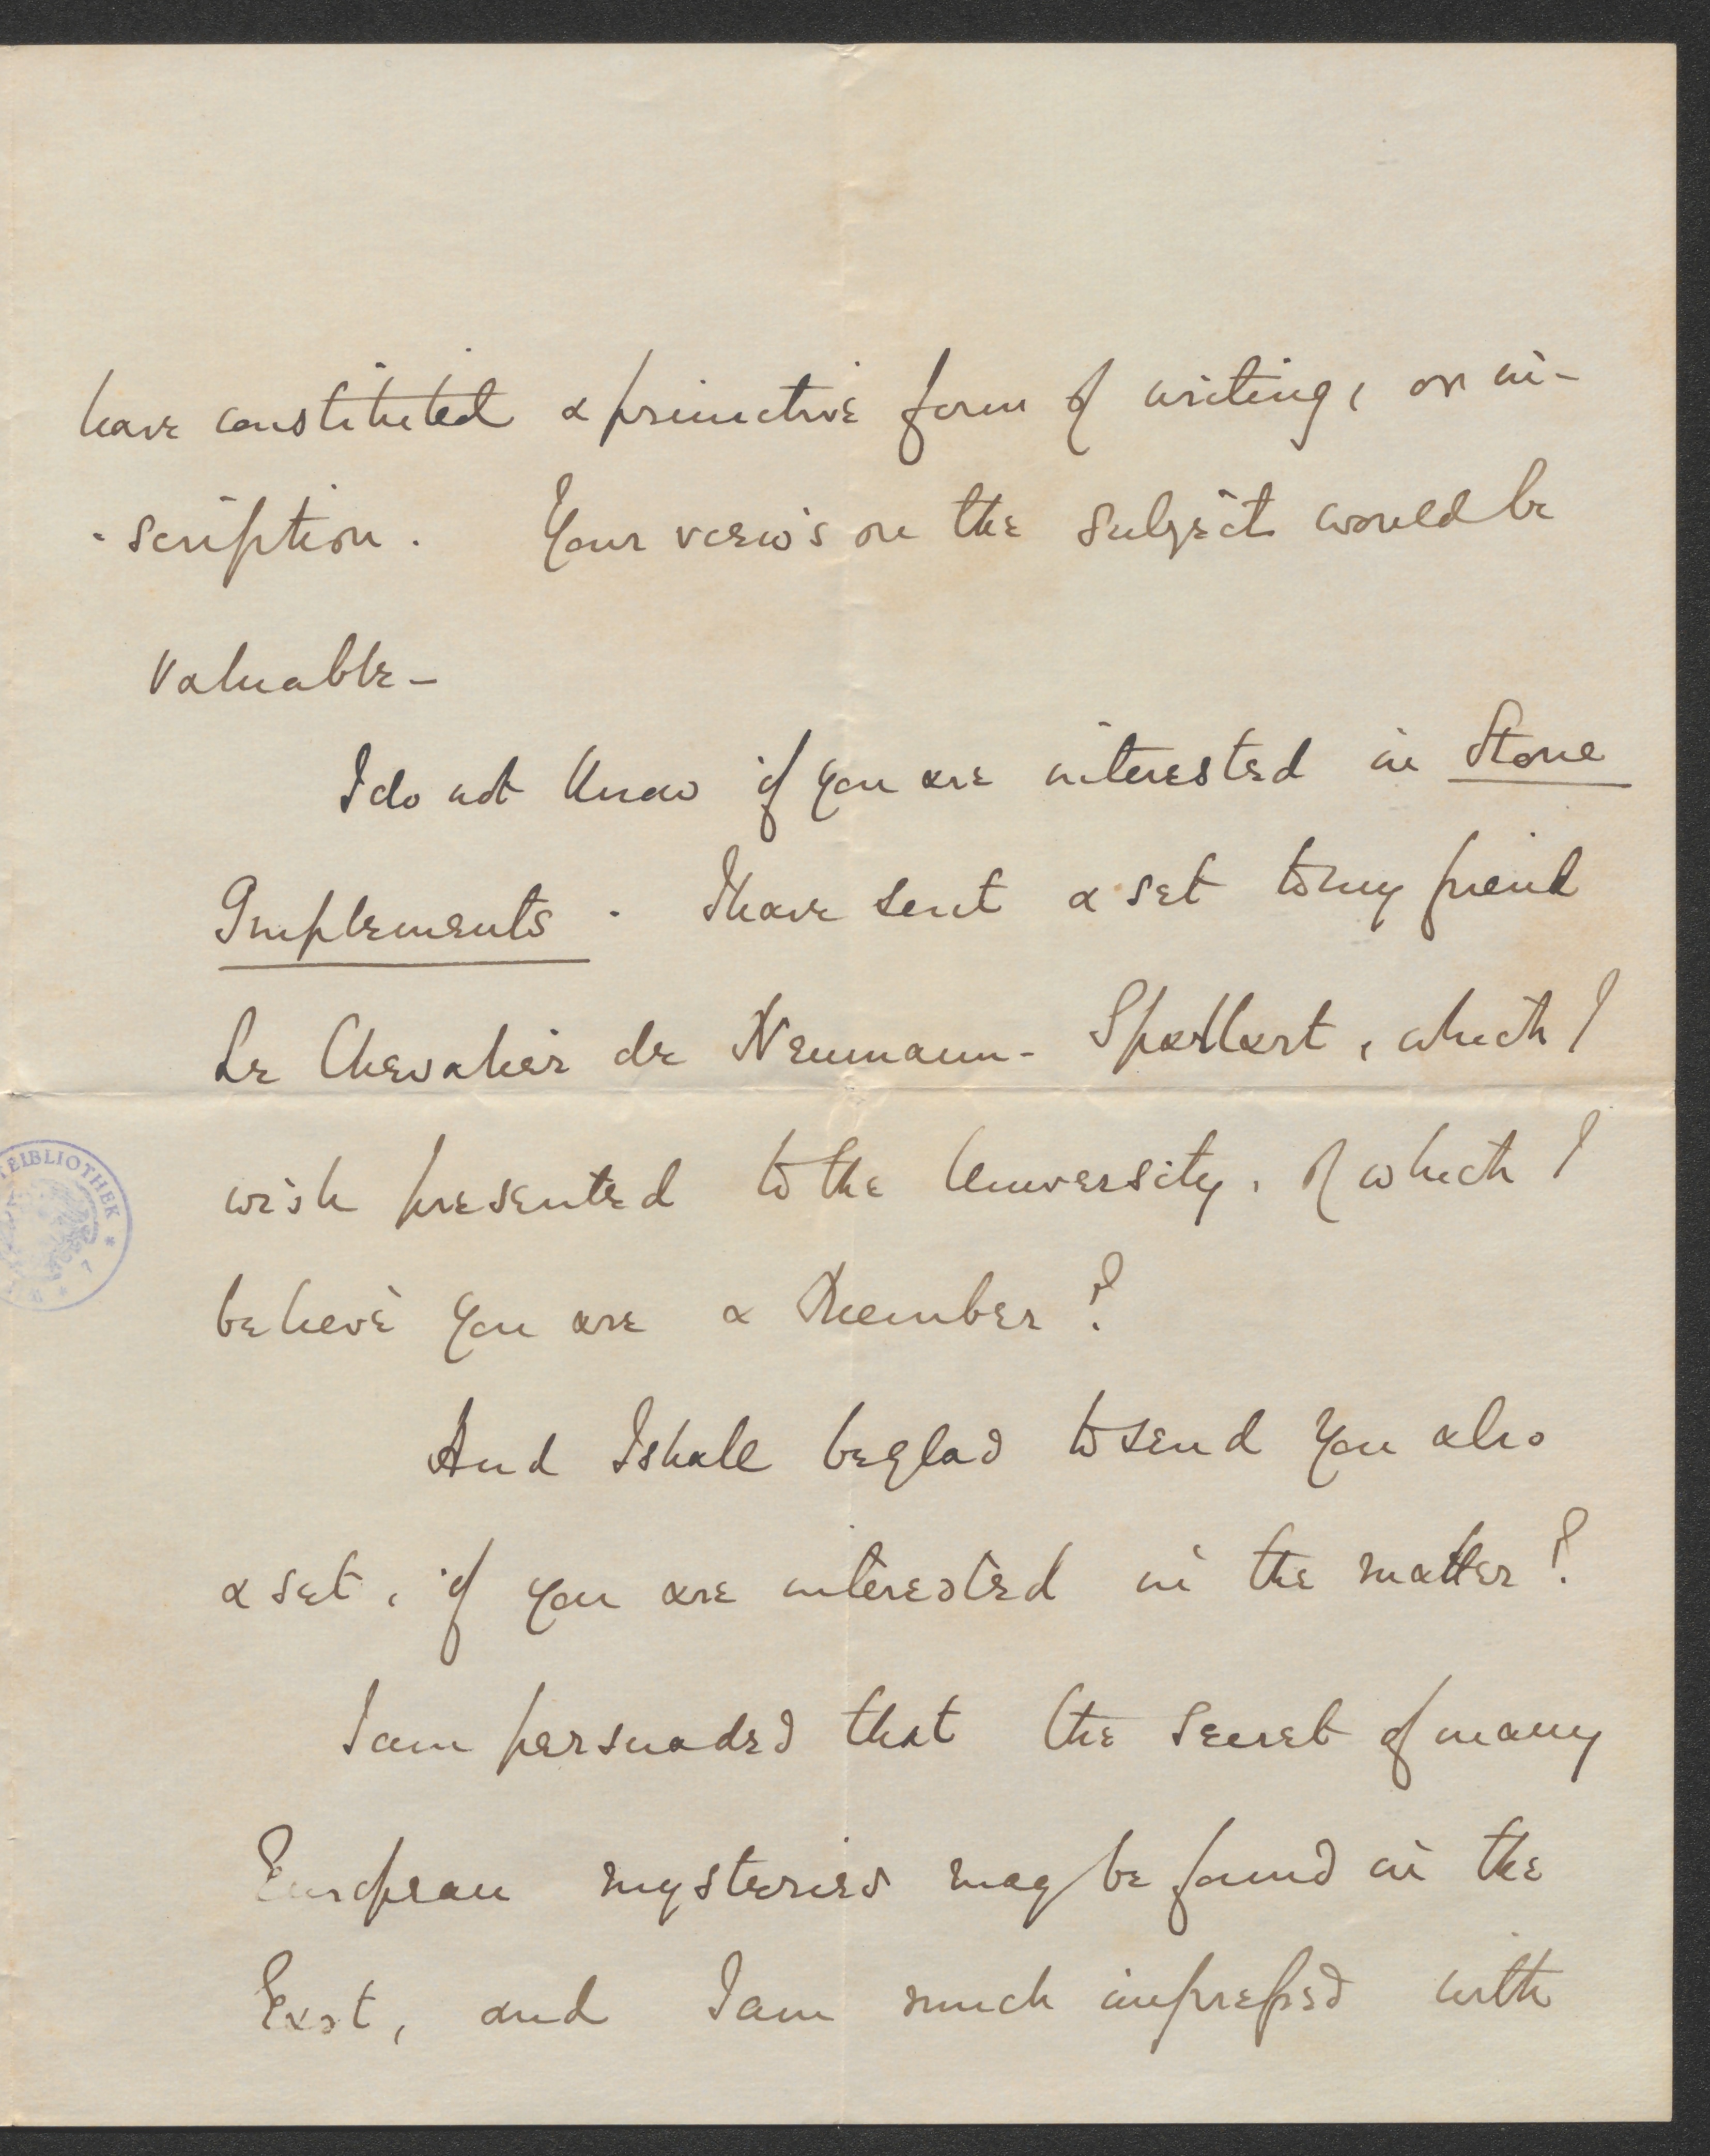 have constituted a primitive form of writing, or in-
-scription. Your views on the subject would be
valuable_
I do not know if you are interested in Stone
Implements. I have sent a set to my friend
Le Chevalier de Neumann-Spallart, which I
wish presented to the University, of which I
believe you are a Member?
And I shall be glad to send you also
a set, if you are interested in the matter?
I am persuaded that the secret of many
European mysteries may be found in the
East, and I am much impressed with
EIBLIOTHEK *